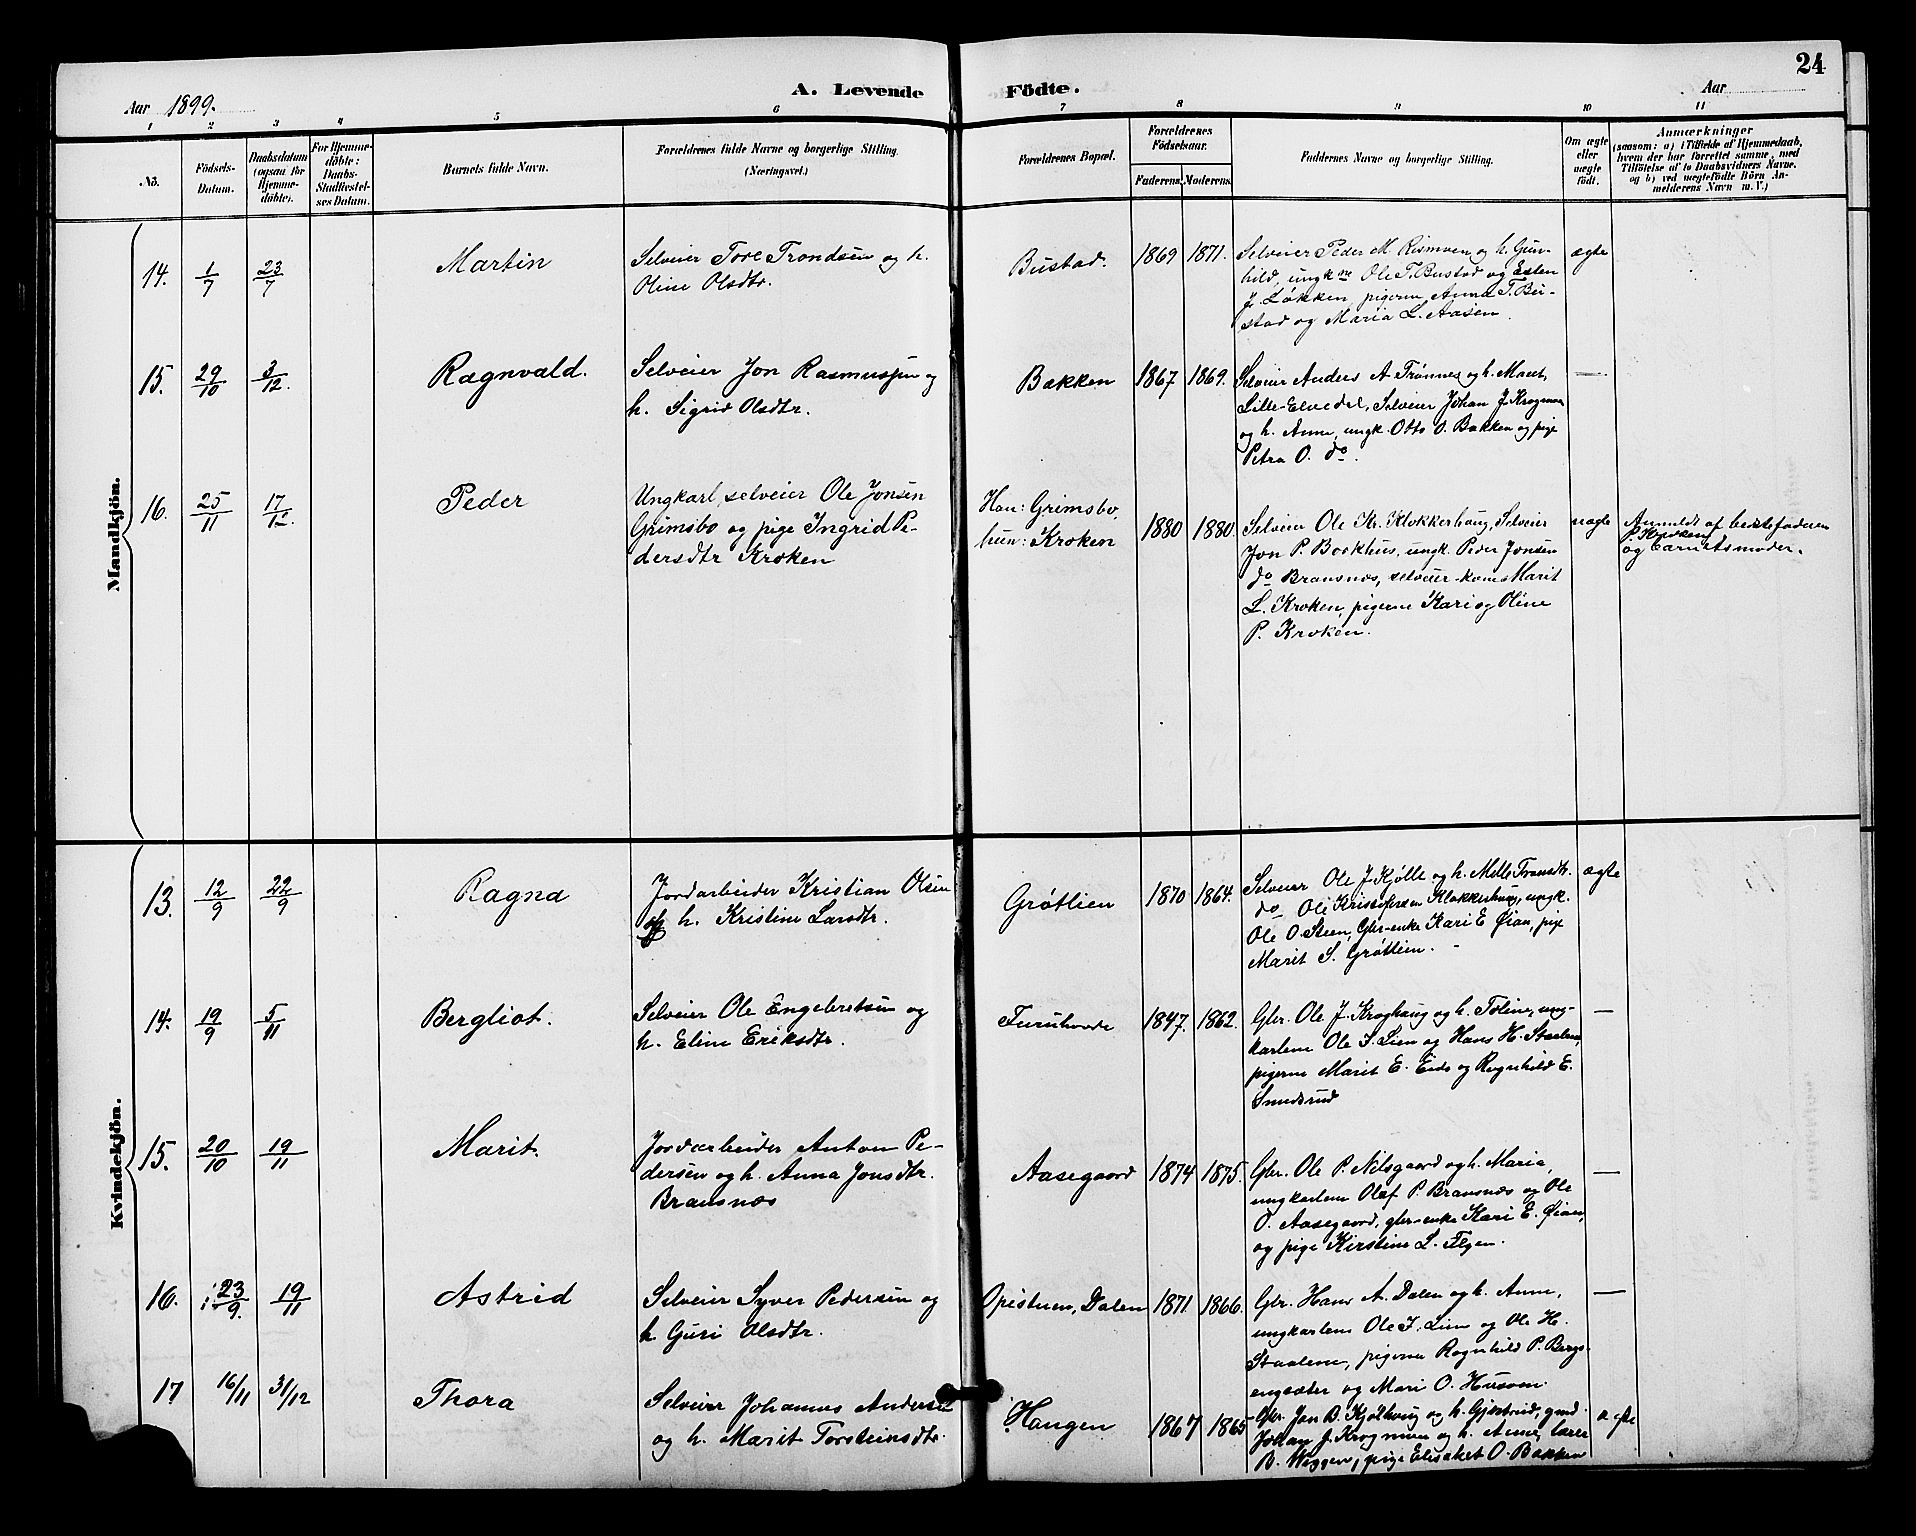 24
Aar 1899.
A. Levende Födte.
Aar
1 2 3 4 5 6 7 8 9 10 11
No.
Födsels-Datum.
Daabsdatum (ogsaa for Hjemmedöbte).
For Hjemmedöbte: Daabs-Stadfæstelses Datum.
Barnets fulde Navn.
Forældrenes fulde Navne og borgerlige Stilling. (Næringsvei.)
Forældrenes Bopæl.
Forældrenes Födselsaar.
Faderens. Moderens.
Faddernes Navne og borgerlige Stilling.
Om ægte eller uægte födt.
Anmærkninger
(saasom: a) i Tilfælde af Hjemmedaab, hvem der har forrettet samme, med Tilföielse af to Daabsvidners Navne, og b) ved uægtefödte Börn Anmelderens Navn m. V.)
Mandkjön.
14. 1/7 23/7 Martin
Selveier Tore Trondsen og h.
Oline Olsdtr.
Bustad. 1869 1871.
Selveier Peder M. Rismoen og h. Gun-
hild, ungk ne Ole T. Bustad og Esten
J. Løkken, pigerne Anna T. Bu-
stad og Maria L. Aasen.
ægte
15. 29/10 3/12. Ragnvald.
Selveier Jon Rasmussen og
h. Sigrid Olsdtr.
Bakken 1867 1869.
Selveier Anders A. Trønnes og h. Maret,
Lille-Elvedal, Selveier Johan J. Krogmoen
og h. Anne, ungk. Otto O. Bakken og pige
Petra O. do.
—
16. 25/11 17/12. Peder
Ungkarl, selveier Ole Jonsen
Grimsbo og pige Ingrid Pe-
dersdtr Kroken
Han: Grimsbo,
hun: Kroken
1880 1880.
Selveier Ole Kr. Klokkerhaug, Selveier
Jon P. Borkhus, ungk. Peder Jonsen
do Bransnæs, selveier-kone Marit
L. Kroken, pigerne Kari og Oline
P. Kroken.
uægte
Anmeldt af bedstefaderen
P. Kroken
og barnets moder.
Kvindekjön.
13. 12/9 22/9 Ragna
Jordarbeider Kristian Olsen
og h. Kristine Larsdtr.
Grøtlien 1870 1864.
Selveier Ole J. Kjølle og h. Mille Tronsdtr.
do Ole Kristofersen Klokkerhaug, ungk.
Ole O. Steen, Gbr-enke Kari E. Øian, pige
Marit S. Grøtlien.
ægte
14. 19/9 5/11 Bergliot.
Selveier Ole Engebretsen og
h. Eline Eriksdtr.
Furuhovde 1847. 1862.
Gbr. Ole J. Kroghaug og h. Toline, ung-
karlene Ole S. Lien og Hans H. Staalene,
pigerne Marit E. Eide og Ragnhild E.
Smedsrud
—
15. 20/10 19/11 Marit.
Jordarbeider Anton Pe-
dersen og h. Anna Jonsdtr.
Bransnæs
Aasegaard 1874 1875.
Gbr. Ole P. Nilsgaard og h. Maria,
ungkarlene Olaf P. Bransnæs og Ole
O. Aasegaard, gbr-enke Kari E. Øian,
og pige Kirstine L. Elgen.
—
16. 23/9. 19/11 Astrid
Selveier Syver Pedersen og
h. Guri Olsdtr.
Opistuen, Dalen 1871 1866.
Gbr. Hans A. Dalen og h. Anne,
ungkarlene Ole I. Lien og Ole H.
Staalene, pigerne Ragnhild P. Bergs-
engsæter og Mari O. Husom.
—
17 16/11 31/12 Thora
Selveier Johannes Andersen
og h. Marit Torsteinsdtr.
Haugen 1867 1865
Gbr. Jon B. Kjølhaug og h. Gjertrud, gmd.
Johan J. Krogmoen og h. Anne, lærer
B. Wiggen, pige Elisabet O. Bakken
ægte